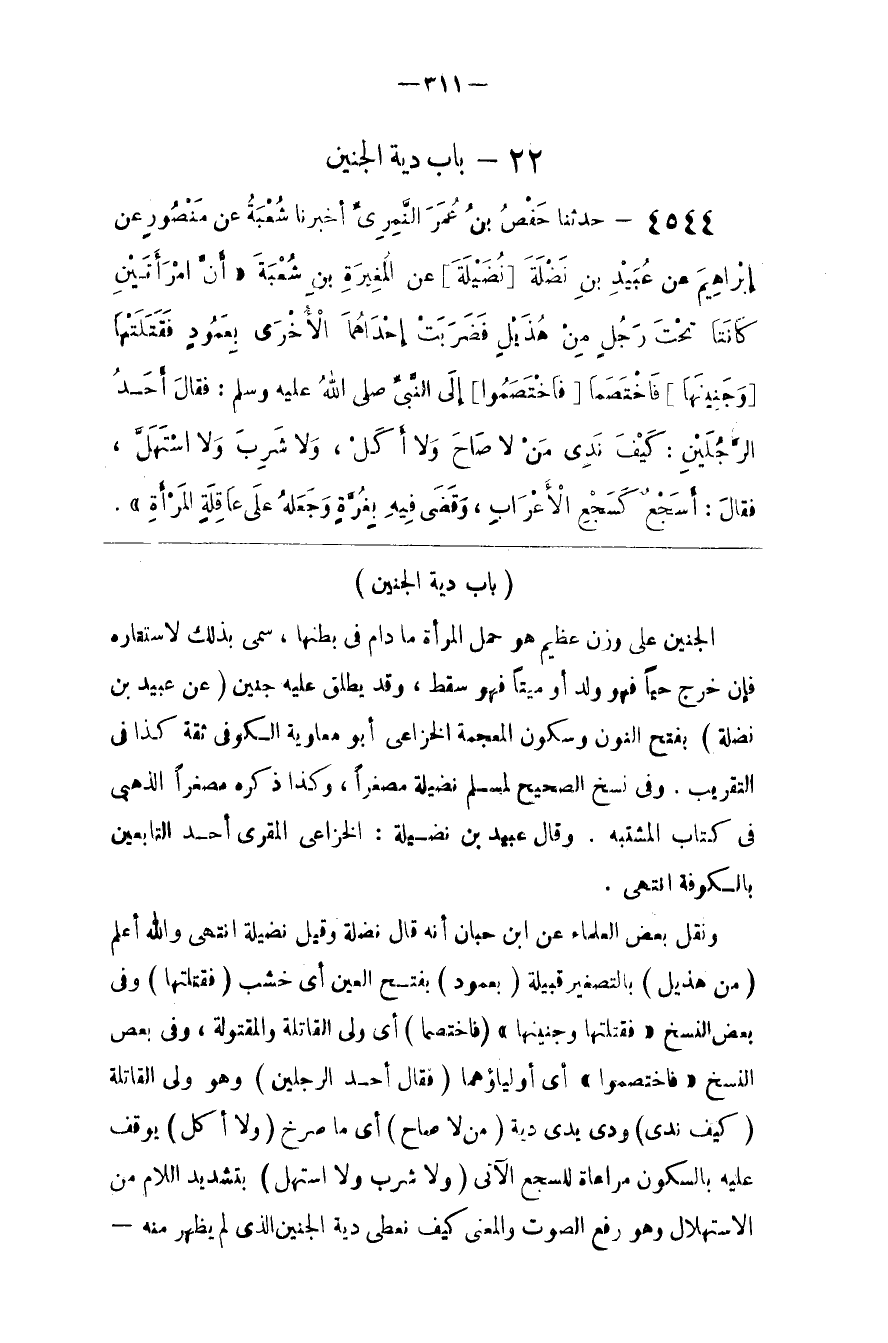 —٣١١—
٢٢ – باب دية الجنين
٤٥٤٤ – حدثنا حَفْصُ بنُ عُمَرَ النَّمِرِىُّ أخبرنا شُعْبَةُ عن مَنْصُورٍ عن
إبْرَاهِيمَ عن عُبَيْدِ بنِ نَضْلَةَ [نُضَيْلَةَ] عن المُغِيرَةِ بنِ شُعْبَةَ « أَنَّ امْرَأَتَـيْنِ
كَانَتَا تَحْتَ رَجُلٍ مِنْ هُذَيْلٍ فَضَرَبَتْ إحْدَاهُمَا الْأُخْرَى بِعَمُودٍ فَقَتَلَتْهَا
[وَجَنِينَهَا] فَاخْتَصَمَا [فاخْتَصَمُوا] إلَى النَّبىِّ صلى اللهُ عليه وسلم : فقالَ أَحَـدُ
الرَّجُلَيْنِ : كَيْفَ نَدِى مَنْ لا صَاحَ وَلا أَكَلْ ، وَلا شَرِبَ وَلا اسْتَهَلَّ ،
فقالَ : أَسَجْعٌ كَسَجْعِ الْأَعْرَابِ ، وَقَضَى فِيهِ بِغُرَّةٍ وَجَعَلهُ عَلَى عَاقِلَةِ المَرْأَةِ » .
( باب دية الجنين )
الجنين على وزن عظيم هو حمل المرأة ما دام فى بطنها ، سمى بذلك لاستقاره
فإن خرج حياً فهو ولد أو ميتاً فهو سقط ، وقد يطلق عليه جنين ( عن عبيد بن
نضلة ) بفتح النون وسكون المعجمة الخزاعى أبو معاوية الـكوفى ثقة كذا فى
التقريب . وفى نسخ الصحيح لمسـلم نضيلة مصغراً ، وكذا ذكره مصغراً الذهبى
فى كتاب المشتبه . وقال عبيد بن نضـيلة : الخزاعى المقرى أحـد التابعين
بالـكوفة انتهى .
ونقل بعض العلماء عن ابن حبان أنه قال نضلة وقيل نضيلة انتهى والله أعلم
( من هذيل ) بالتصغير قبيلة ( بعمود ) بفتـح العين أى خشب ( فقتلتها ) وفى
بعض النسخ « فقتلتها وجنينها » (فاختصما ) أى ولى القاتلة والمقتولة ، وفى بعص
النسخ « فاختصموا » أى أولياؤهما ( فقال أحـد الرجلين ) وهو ولى القاتلة
( كيف ندى) ودى يدى دية ( من لا صاح ) أى ما صرخ ( ولا أكل ) يوقف
عليه بالسكون مراعاة للسجع الآتى ( ولا شرب ولا استهل ) بتشديد اللام من
الاستهلال وهو رفع الصوت والمعنى كيف نعطى دية الجنين الذى لم يظهر منه —